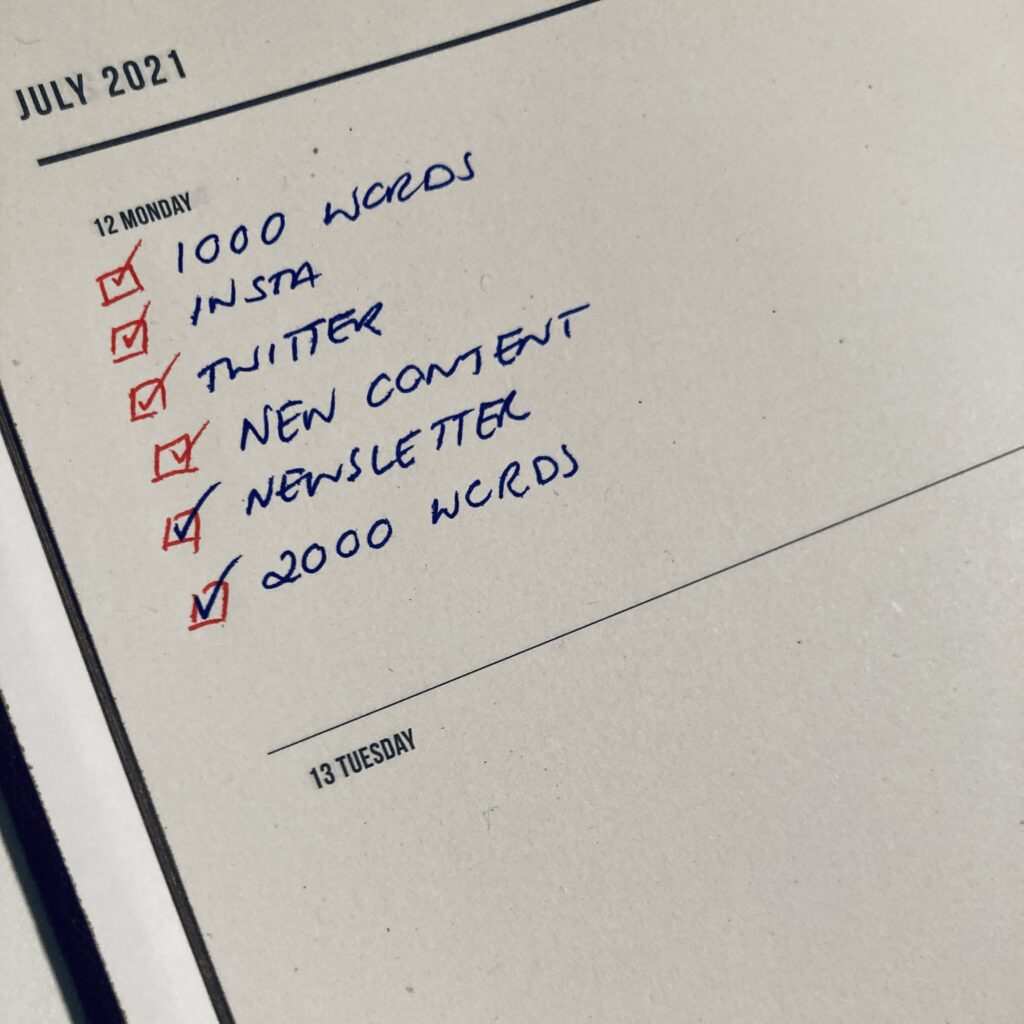 JULY 2021
12 MONDAY
1000 WORDS
INSTA
TWITTER
NEW CONTENT
NEWSLETTER
2000 WORDS
13 TUESDAY